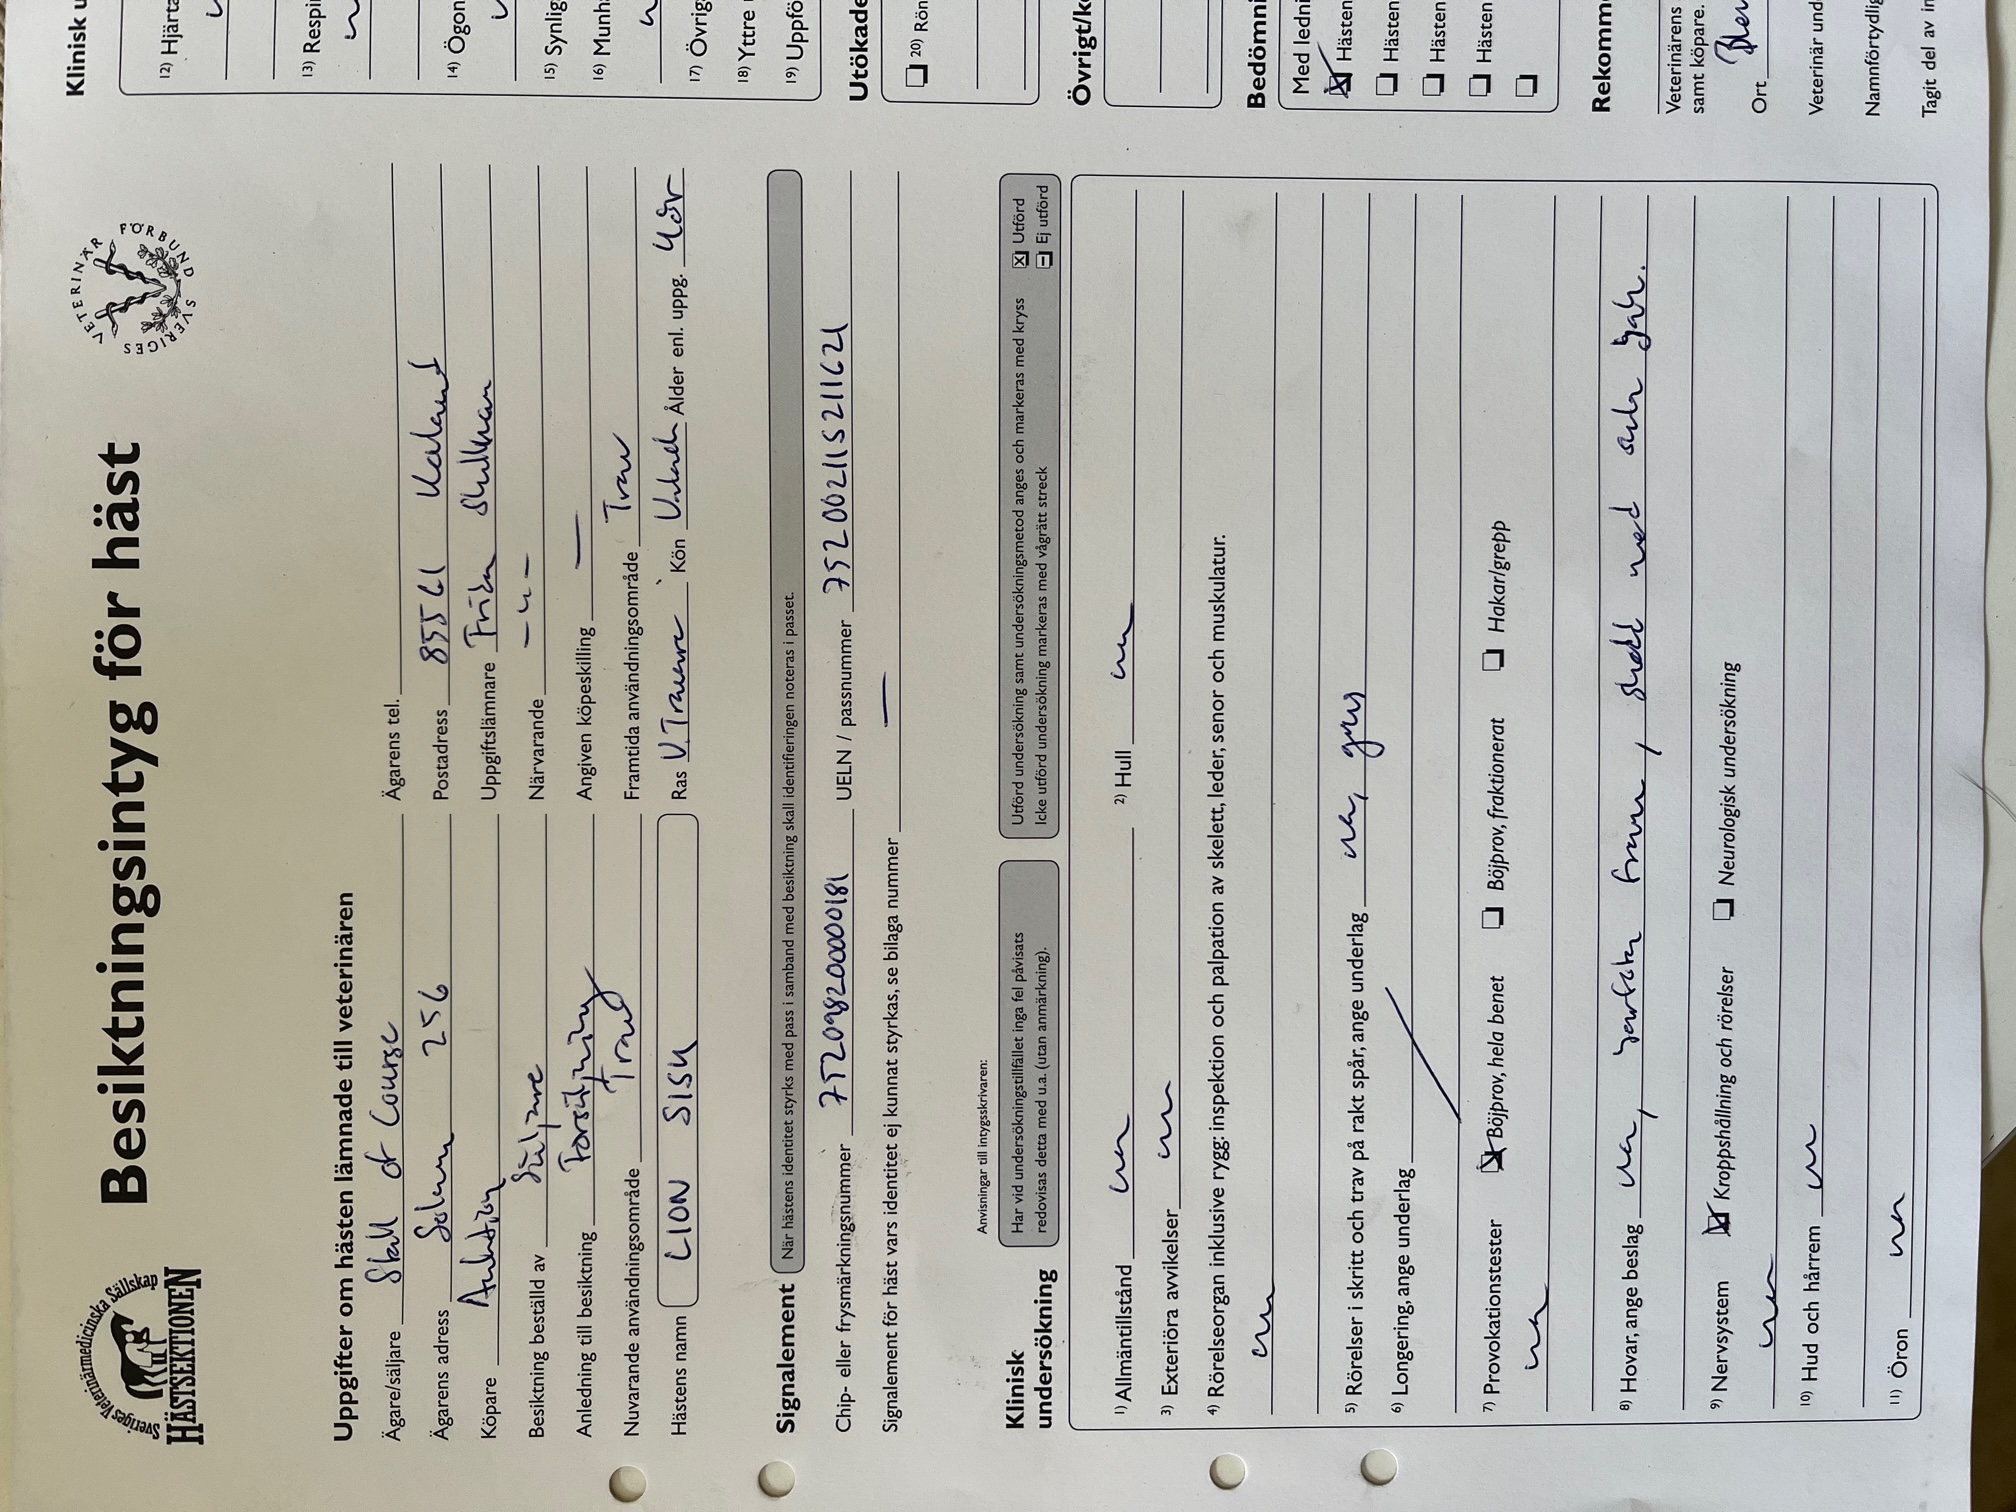 Sveriges Veterinärmedicinska Sällskap
HÄSTSEKTIONEN
Besiktningsintyg för häst
SVERIGES VETERINÄR FÖRBUND
Uppgifter om hästen lämnade till veterinären
Ägare/säljare Stall of Course Ägarens tel.
Ägarens adress 256 Postadress 85561
Köpare Auktion Uppgiftslämnare Frida
Besiktning beställd av Säljare Närvarande -"-
Anledning till besiktning Försäljning Angiven köpeskilling —
Nuvarande användningsområde Trav Framtida användningsområde Trav
Hästens namn LION SISU Ras V. Travare Kön Valack Ålder enl. uppg. 4år
Signalement När hästens identitet styrks med pass i samband med besiktning skall identifieringen noteras i passet.
Chip- eller frysmärkningsnummer 752098200000181 UELN / passnummer 752002115211621
Signalement för häst vars identitet ej kunnat styrkas, se bilaga nummer —
Anvisningar till intygsskrivaren:
Klinisk undersökning
Har vid undersökningstillfället inga fel påvisats
redovisas detta med u.a. (utan anmärkning).
Utförd undersökning samt undersökningsmetod anges och markeras med kryss ☒ Utförd
Icke utförd undersökning markeras med vågrätt streck ⊟ Ej utförd
1) Allmäntillstånd ua 2) Hull ua
3) Exteriöra avvikelser ua
4) Rörelseorgan inklusive rygg: inspektion och palpation av skelett, leder, senor och muskulatur.
ua
5) Rörelser i skritt och trav på rakt spår, ange underlag ua, grus
6) Longering, ange underlag
7) Provokationstester ☒ Böjprov, hela benet ☐ Böjprov, fraktionerat ☐ Hakar/grepp
ua
8) Hovar, ange beslag ua, barfota fram, skodd med bak.
9) Nervsystem ☒ Kroppshållning och rörelser ☐ Neurologisk undersökning
ua
10) Hud och hårrem ua
11) Öron ua
Klinisk u
12) Hjärta
13) Respi
14) Ögon
15) Synlig
16) Munh
17) Övrig
18) Yttre
19) Uppfö
Utökade
☐ 20) Rön
Övrigt/k
Bedömni
Med ledni
☒ Hästen
☐ Hästen
☐ Hästen
☐ Hästen
☐
Rekomm
Veterinärens
samt köpare.
Ort
Veterinär und
Namnförtydlig
Tagit del av in